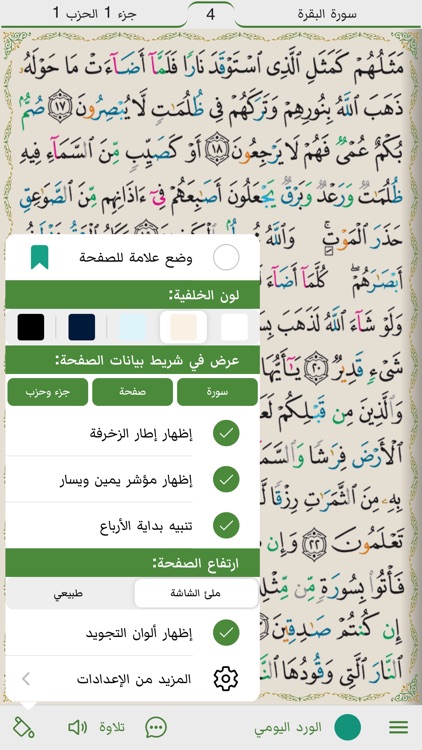 سورة البقرة
4
جزء 1 الحزب 1
مَثَلُهُمْ كَمَثَلِ ٱلَّذِى ٱسْتَوْقَدَ نَارًا فَلَمَّآ أَضَآءَتْ مَا حَوْلَهُۥ
ذَهَبَ ٱللَّهُ بِنُورِهِمْ وَتَرَكَهُمْ فِى ظُلُمَٰتٍ لَّا يُبْصِرُونَ ١٧ صُمٌّۢ
بُكْمٌ عُمْىٌ فَهُمْ لَا يَرْجِعُونَ ١٨ أَوْ كَصَيِّبٍ مِّنَ ٱلسَّمَآءِ فِيهِ
ظُلُمَٰتٌ وَرَعْدٌ وَبَرْقٌ يَجْعَلُونَ أَصَٰبِعَهُمْ فِىٓ ءَاذَانِهِم مِّنَ ٱلصَّوَٰعِقِ
حَذَرَ ٱلْمَوْتِ ۚ وَٱللَّهُ
أَبْصَٰرَهُمْ ۖ كُلَّمَآ أَضَآءَ
وَلَوْ شَآءَ ٱللَّهُ لَذَهَبَ
شَىْءٍ قَدِيرٌ ٢٠ يَٰٓأَيُّهَا
وَٱلَّذِينَ مِن قَبْلِكُمْ
ٱلْأَرْضَ فِرَٰشًا وَٱلسَّمَآءَ
بِهِۦ مِنَ ٱلثَّمَرَٰتِ رِزْقًا
تَعْلَمُونَ ٢٢ وَإِن
فَأْتُوا۟ بِسُورَةٍ مِّن مِّثْلِهِۦ
إِن كُنتُمْ صَٰدِقِينَ
ٱلنَّارَ ٱلَّتِى وَقُودُهَا
وضع علامة للصفحة
لون الخلفية:
عرض في شريط بيانات الصفحة:
سورة
صفحة
جزء وحزب
إظهار إطار الزخرفة
إظهار مؤشر يمين ويسار
تنبيه بداية الأرباع
ارتفاع الصفحة:
ملئ الشاشة
طبيعي
إظهار ألوان التجويد
المزيد من الإعدادات
الورد اليومي
تلاوة